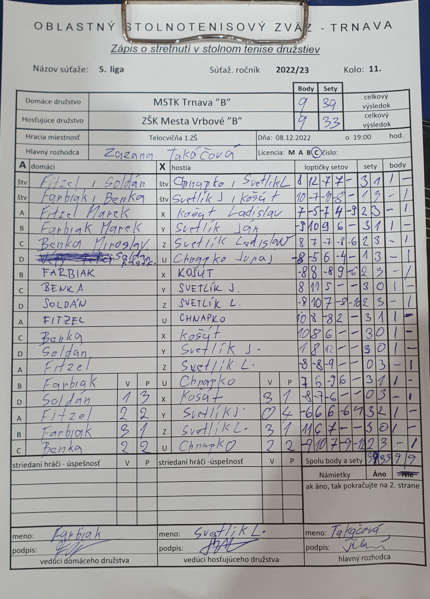 OBLASTNÝ STOLNOTENISOVÝ ZVÄZ - TRNAVA
Zápis o stretnutí v stolnom tenise družstiev
Názov súťaže: 5. liga Súťaž. ročník 2022/23 Kolo: 11.
Body Sety
Domáce družstvo MSTK Trnava "B" 9 39 celkový výsledok
Hosťujúce družstvo ZŠK Mesta Vrbové "B" 9 33 celkový výsledok
Hracia miestnosť Telocvičňa 1.ZŠ Dňa: 08.12.2022 o 19:00 hod.
Hlavný rozhodca Zuzana Takáčová Licencia: M A B C číslo:
A domáci X hostia loptičky setov sety body
štv Fitzel, Soldán štv Chnapko, Svetlík L 8 12 7 7 - 3 1 1 -
štv Farbiak, Benka štv Svetlík J, Košút 1 3 - 1
A Fitzel Marek X Košút Ladislav 2 3 - 1
B Farbiak Marek Y Svetlík Ján 3 1 1 -
C Benka Miroslav Z Svetlík Ladislav 2 3 - 1
D Soldán U Chnapko Juraj 1 3 - 1
B FARBIAK X KOŠÚT 2 3 - 1
C BENKA Y SVETLÍK J. 8 11 5 - - 3 0 1
D SOLDÁN Z SVETLÍK L. 2 3 - 1
A FITZEL U CHNAPKO 3 1 1 -
C Benka X Košút 10 8 6 - - 3 0 1 -
D Soldán Y Svetlík J. 3 0 1 -
A Fitzel Z Svetlík L. -8 -8 -9 - - 0 3 - 1
B Farbiak V P U Chnapko V P 3 1 1
D Soldán 1 3 X Košút 3 1 0 3 - 1
A Fitzel 2 2 Y Svetlík J. 0 4 3 2 1
B Farbiak 3 1 Z Svetlík L. 3 1 11 6 7 - - 3 0 1
C Benka 2 2 U Chnapko 2 2 2 3 - 1
striedaní hráči - úspešnosť V P striedaní hráči - úspešnosť V P Spolu body a sety 39 33 9 9
Námietky Áno Nie
ak áno, tak pokračujte na 2. strane
meno: Farbiak meno: Svetlík L. meno: Takáčová
podpis: podpis: podpis:
vedúci domáceho družstva vedúci hosťujúceho družstva hlavný rozhodca